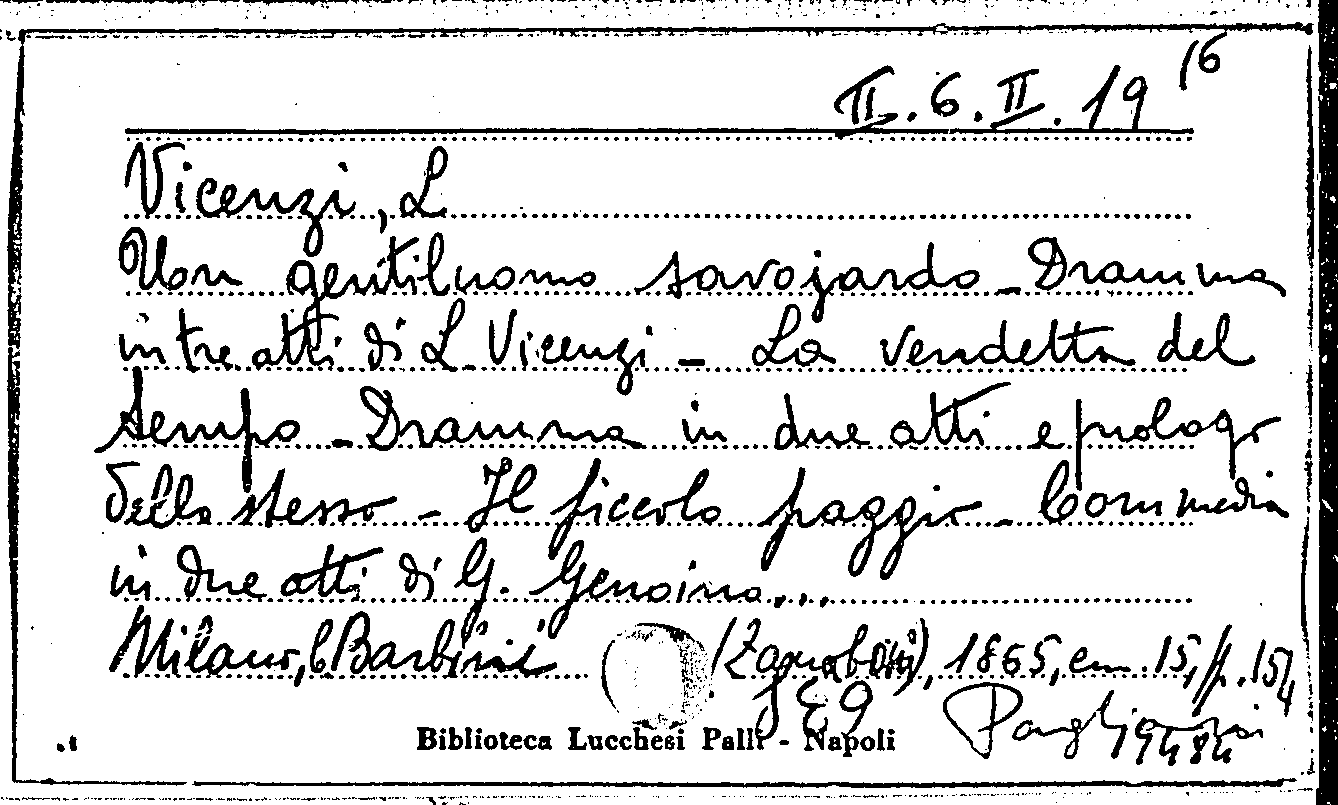 II.6.II.19 16
Vicenzi, L
Uon gentiluomo savojardo - Dramma
in tre atti di L. Vicenzi - La vendetta del
tempo - Dramma in due atti e prologo
dello stesso - Il piccolo paggio - Commedia
in due atti di G. Genoino...
Milano, C. Barbini (Zanaboni), 1865, cm. 15, p. 154
Biblioteca Lucchesi Palli - Napoli